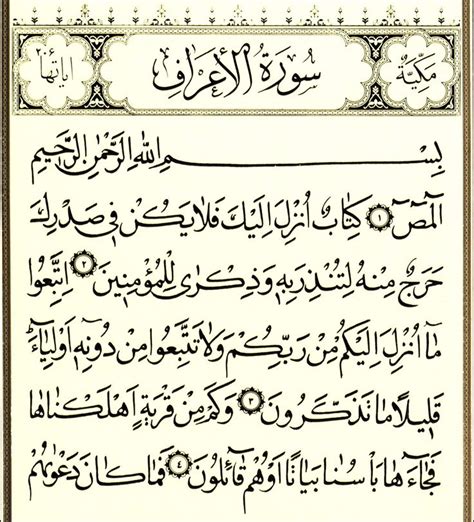 مكية سورة الأعراف آياتها ٢٠٦
بِسْمِ اللّٰهِ الرَّحْمٰنِ الرَّحِيمِ
الٓمٓصٓ ۝١ كِتَابٌ اُنْزِلَ اِلَيْكَ فَلَا يَكُنْ فٖى صَدْرِكَ
حَرَجٌ مِنْهُ لِتُنْذِرَ بِهٖ وَذِكْرٰى لِلْمُؤْمِنٖينَ ۝٢ اِتَّبِعُوا
مَٓا اُنْزِلَ اِلَيْكُمْ مِنْ رَبِّكُمْ وَلَا تَتَّبِعُوا مِنْ دُونِهٖٓ اَوْلِيَٓاءَ
قَلٖيلًا مَا تَذَكَّرُونَ ۝٣ وَكَمْ مِنْ قَرْيَةٍ اَهْلَكْنَاهَا
فَجَٓاءَهَا بَاْسُنَا بَيَاتًا اَوْ هُمْ قَٓائِلُونَ ۝٤ فَمَا كَانَ دَعْوٰيهُمْ